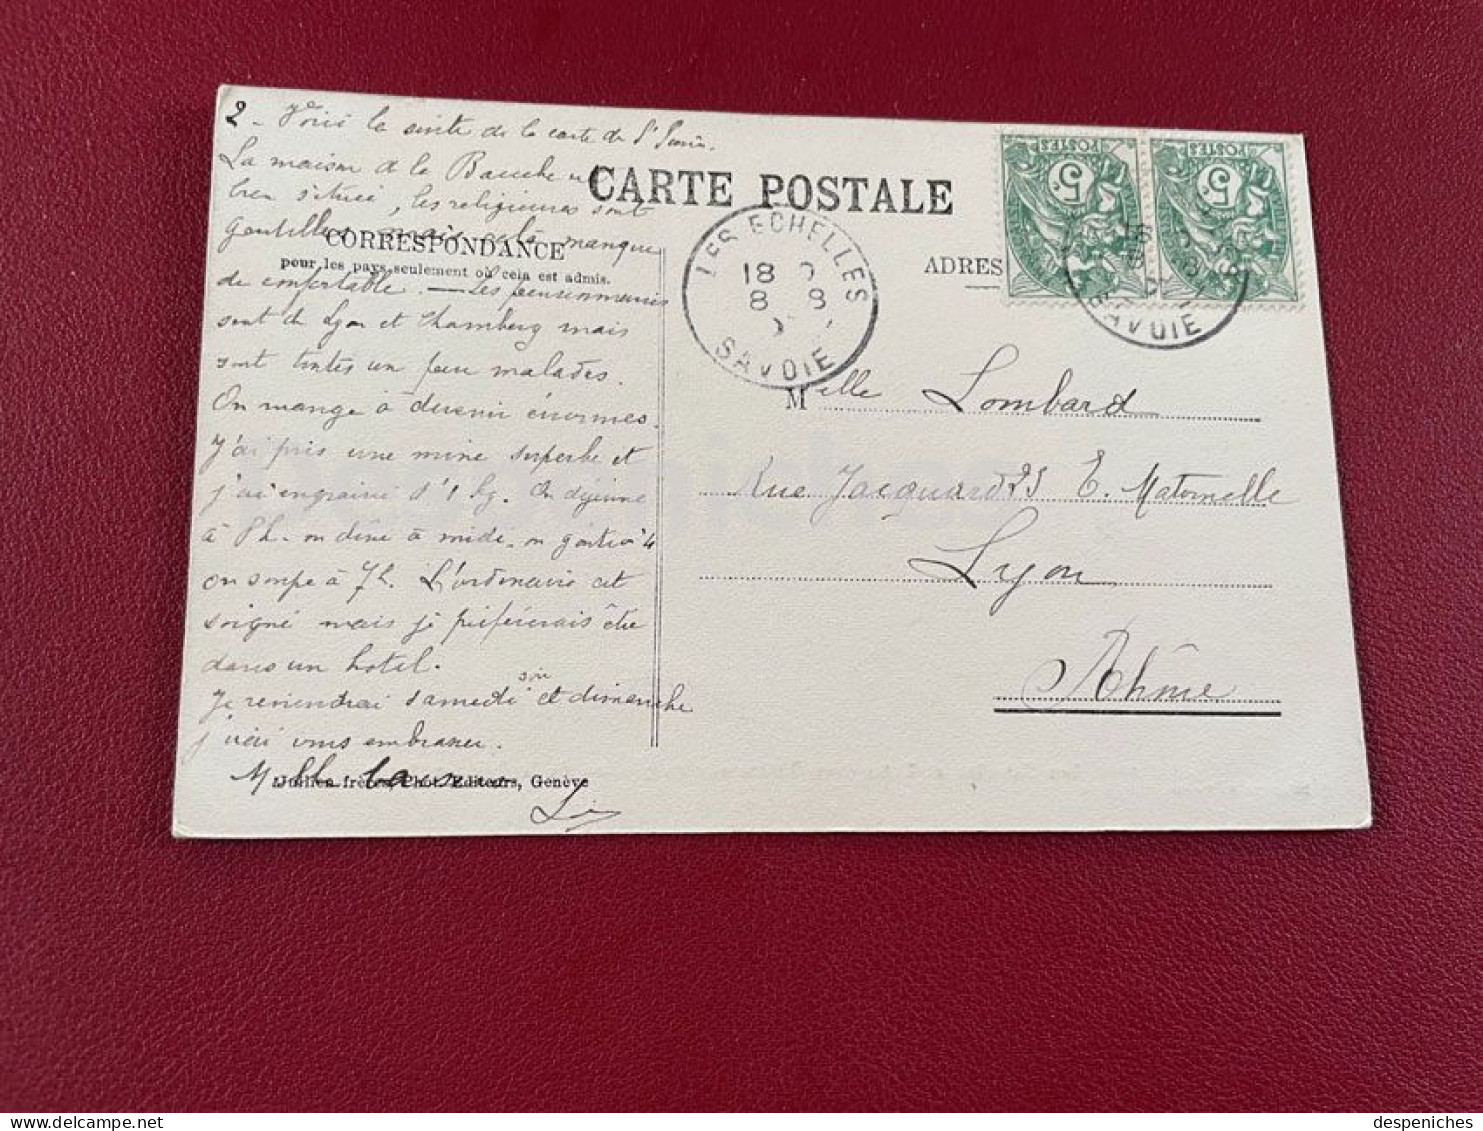 2 - Voici la suite de la carte de St
La maison de la Bauche est
bien située, les religieuses sont
gentilles mais cela manque
de confortable. — Les pensionnaires
sont de Lyon et Chambery mais
sont toutes un peu malades.
On mange à devenir énormes.
J'ai pris une mine superbe et
j'ai engraissé d'1 Kg. On déjeune
à 8h. on dîne à midi. on goûte à 4
on soupe à 7h. L'ordinaire est
soigné mais je préférerais être
dans un hotel.
Je reviendrai samedi soir et dimanche
j'irai vous embrasser.
CARTE POSTALE
CORRESPONDANCE
pour les pays seulement où cela est admis.
ADRES
LES ECHELLES
18
8 8
SAVOIE
POSTES
5c
POSTES
5c
SAVOIE
Melle Lombard
Rue Jacquard 25 E. Maternelle
Lyon
Rhône
Jullien frères, Phot. Editeurs, Genève
despeniches